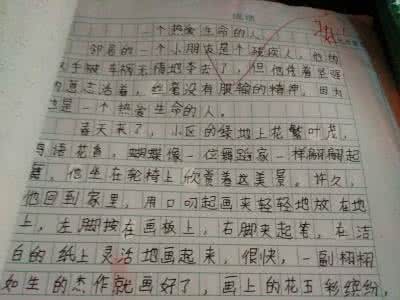 一个热爱生命的人
邻居的一个小朋友是个残疾人，他的
双手被车祸无情地夺去了，但他凭着坚强
的意志活着，丝毫没有服输的精神，因为
他是一个热爱生命的人。
春天来了，小区的绿地上花繁叶茂，
鸟语花香，蝴蝶像一位舞蹈家一样翩翩起
舞，他坐在轮椅上欣赏着这美景。许久，
他回到家里，用口叼起画夹轻轻地放在地
上，左脚按在画板上，右脚夹起笔，在洁
白的纸上灵活地画起来，很快，一副栩栩
如生的杰作就画好了，画上的花五彩缤纷，